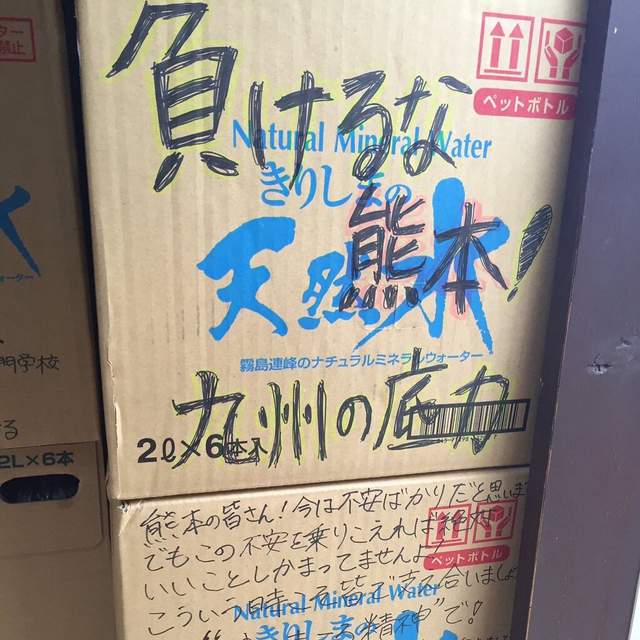 負けるな
熊本!
九州の底力
ペットボトル
Natural Mineral Water
きりしまの
天然水
霧島連峰のナチュラルミネラルウォーター
2ℓ×6本入
禁止
門学校
る
2L×6本
熊本の皆さん!今は不安ばかりだと思いま
でもこの不安を乗りこえれば絶対
いいことしかまってませんよ
こういう時こそ皆で支え合いましょ
精神"で!
ペットボトル
Natural Mineral Water
きりしまの